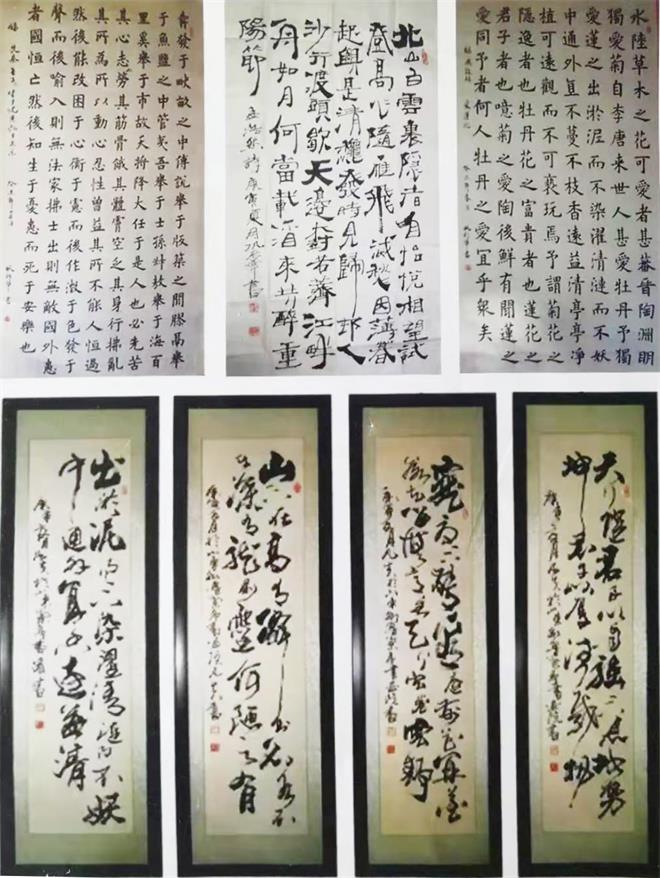 水陸草木之花可愛者甚蕃晉陶淵明
獨愛菊自李唐來世人甚愛牡丹予獨
愛蓮之出淤泥而不染濯清漣而不妖
中通外直不蔓不枝香遠益清亭亭淨
植可遠觀而不可褻玩焉予謂菊花之
隱逸者也牡丹花之富貴者也蓮花之
君子者也噫菊之愛陶後鮮有聞蓮之
愛同予者何人牡丹之愛宜乎衆矣
北山白雲裏隱者自怡悅相望試
登高心隨雁飛滅愁因薄暮
起興是清秋發時見歸邨人
沙行渡頭歇天邊樹若薺江畔
舟如月何當載酒來共醉重
陽節
孟浩然詩庚寅夏月
舜發于畎畝之中傳說舉于版築之間膠鬲舉
于魚鹽之中管夷吾舉于士孫叔敖舉于海百
里奚舉于市故天將降大任于是人也必先苦
其心志勞其筋骨餓其體膚空乏其身行拂亂
其所為所以動心忍性曾益其所不能人恒過
然後能改困于心衡于慮而後作徵于色發于
聲而後喻入則無法家拂士出則無敵國外患
者國恒亡然後知生于憂患而死于安樂也
天行健君子以自強不息地勢
坤君子以厚德載物
寵辱不驚看庭前花開花
山不在高有仙則名水不
在深有龍則靈何陋之有
出淤泥而不染濯清漣而不妖
中通外直香遠益清